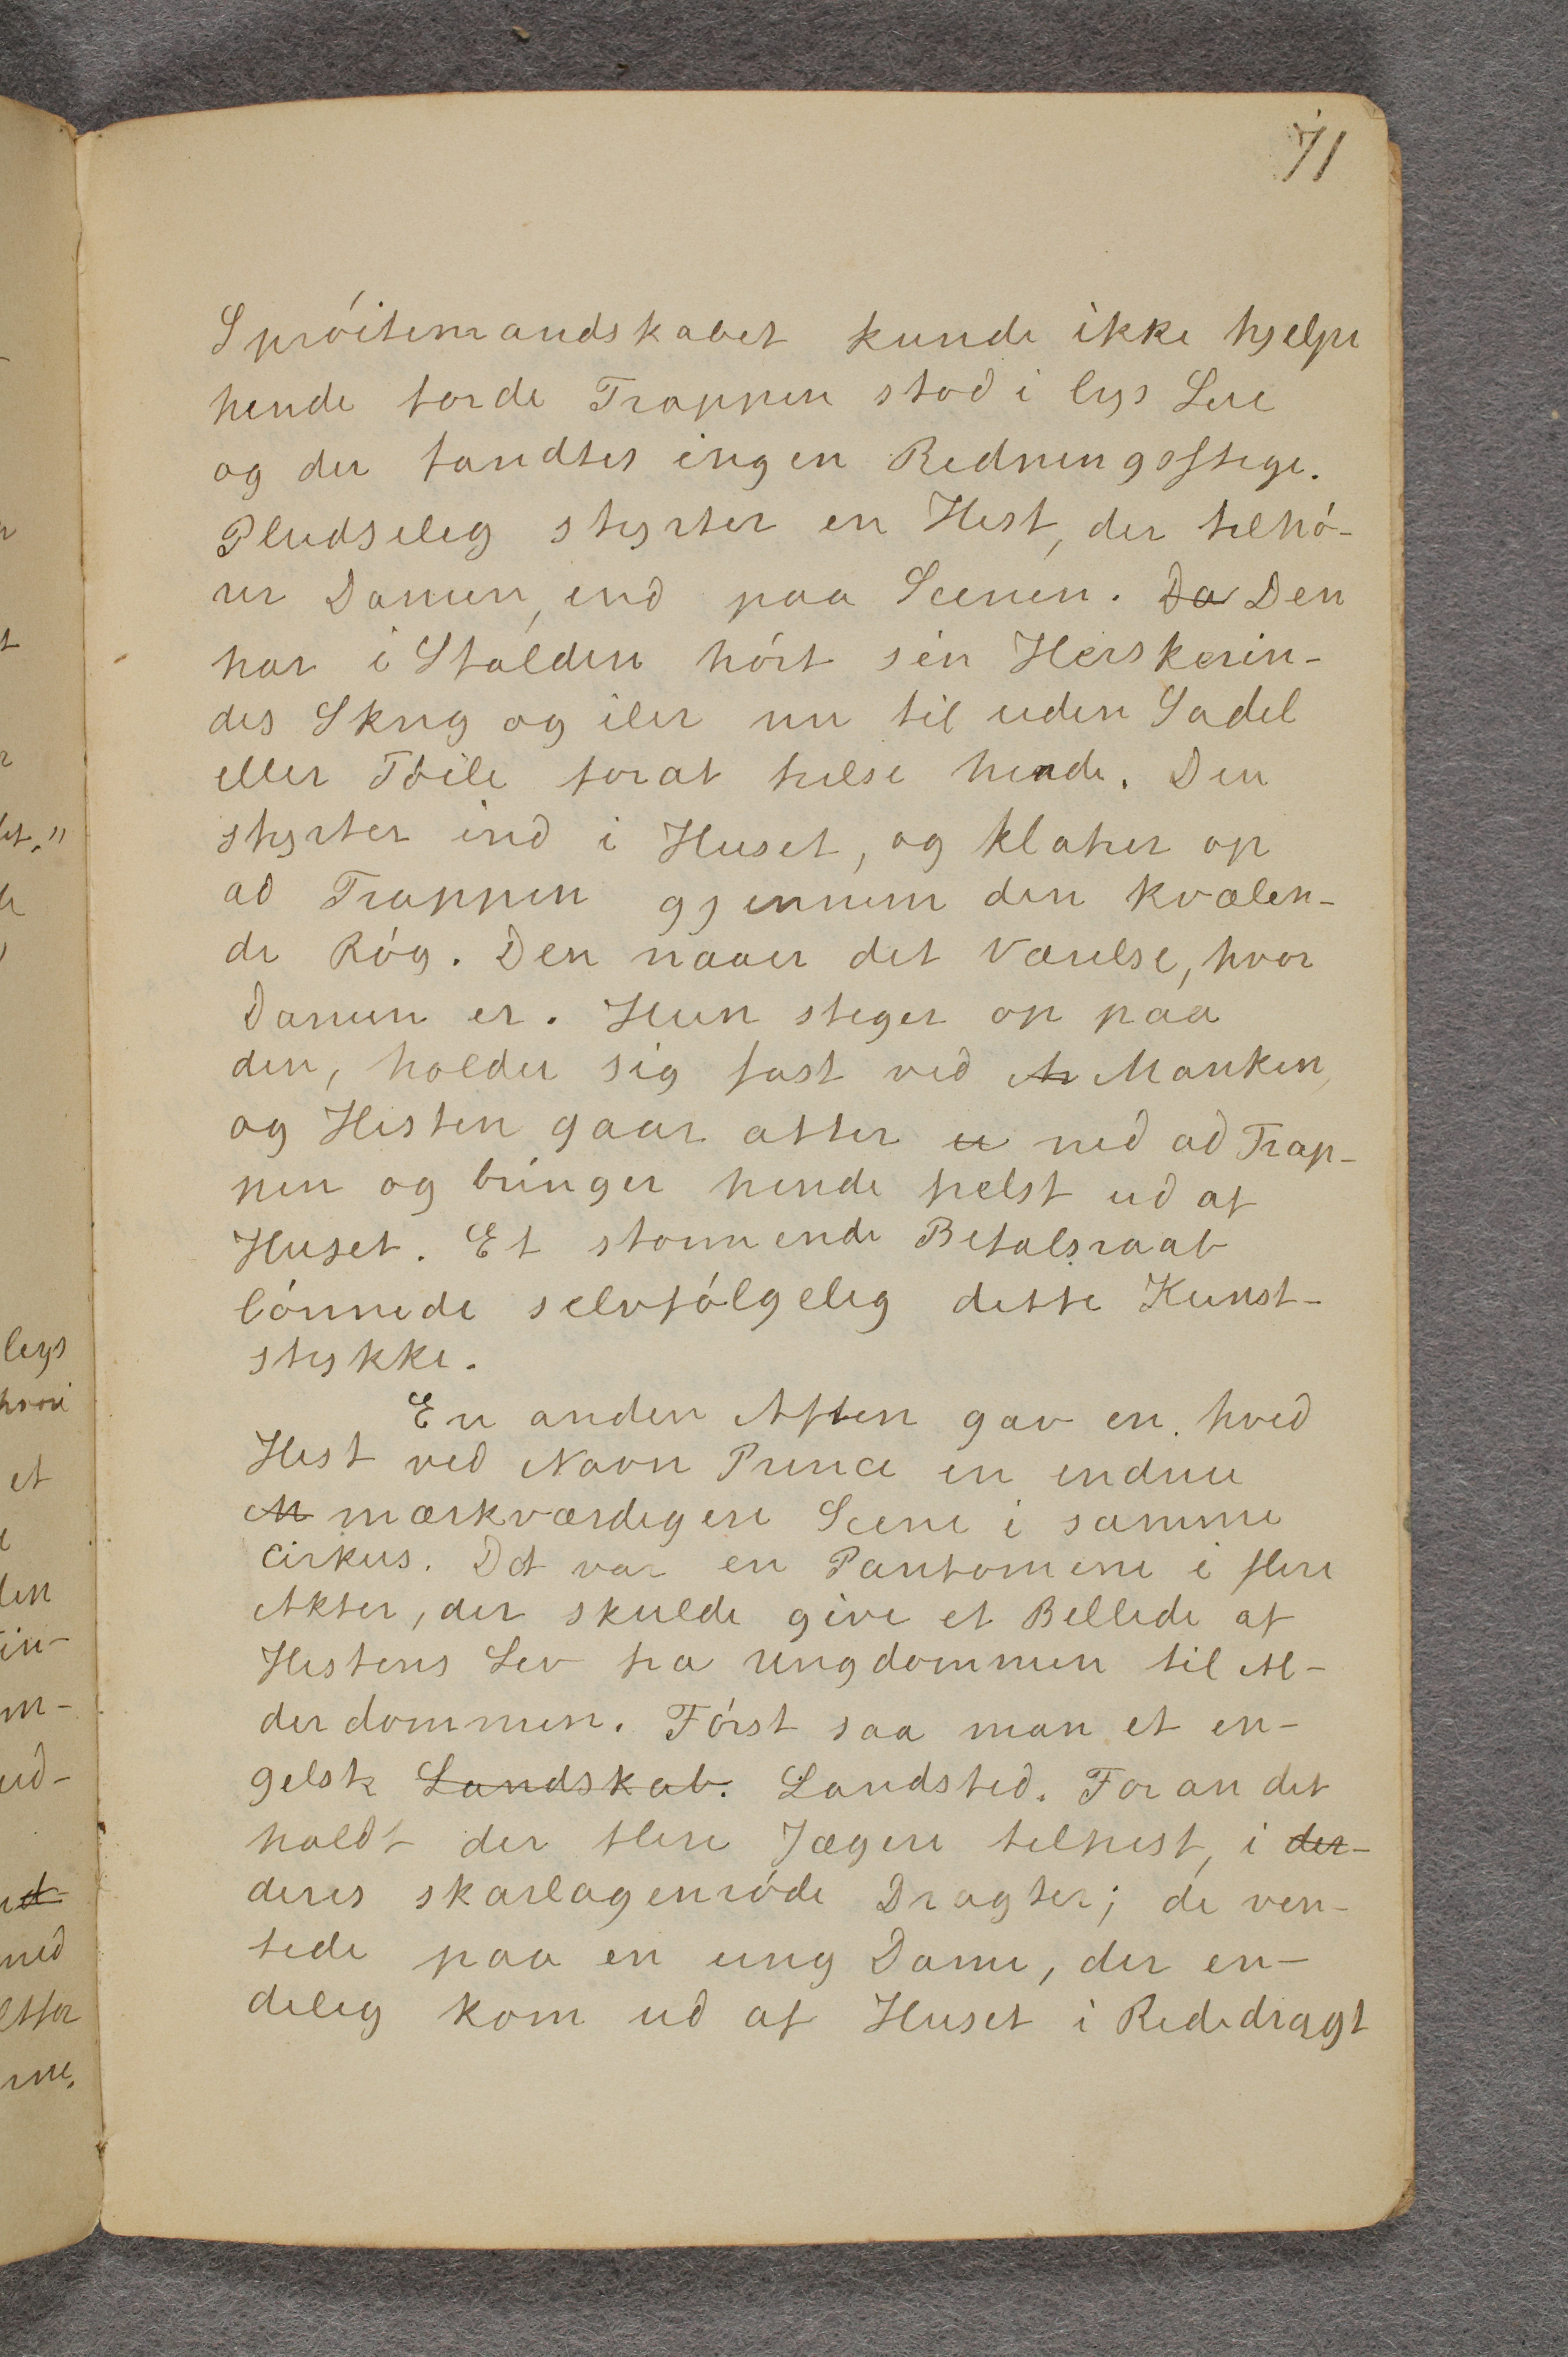 71
Spróitemandskabet kunde ikke hjelpe
hende forde Trappen stod i lys Lue
og der fandtes ingen Redningsstige.
Pludselig styrter en Hest, der tilhó-
rer Damen, ind paa Scenen. Da Den
har i Stalden hórt sin Herskerin-
des Skrig og iler nu til uden Sadel
eller Tóile forat frelse hende. Den
styrter ind i Huset, og klatrer op
ad Trappen gjennem den kvælen-
de Róg. Den naaer det Værelse, hvor
Damen er. Hun stiger op paa
den, holder sig fast ved M Manken,
og Hesten gaar atter u ned ad Trap-
pen og bringer hende frelst ud af
Huset. Et stormende Bifalsraab
lónnede selvfólgelig dette Kunst-
stykke.
En anden Aften gav en hvid
Hest ved Navn Prince en endnu
M mærkværdigere Scene i samme
Cirkus. Det var en Pantomime i flere
Akter, der skulde give et Billede af
Hestens Liv fra Ungdommen til Al-
derdommen. Fórst saa man et en-
gelsk Landskab. Landsted. Foran det
holdt der flere Jægere tilhest, i der-
deres skarlagenróde Dragter; de ven-
tede paa en ung Dame, der en-
delig kom ud af Huset i Rededragt